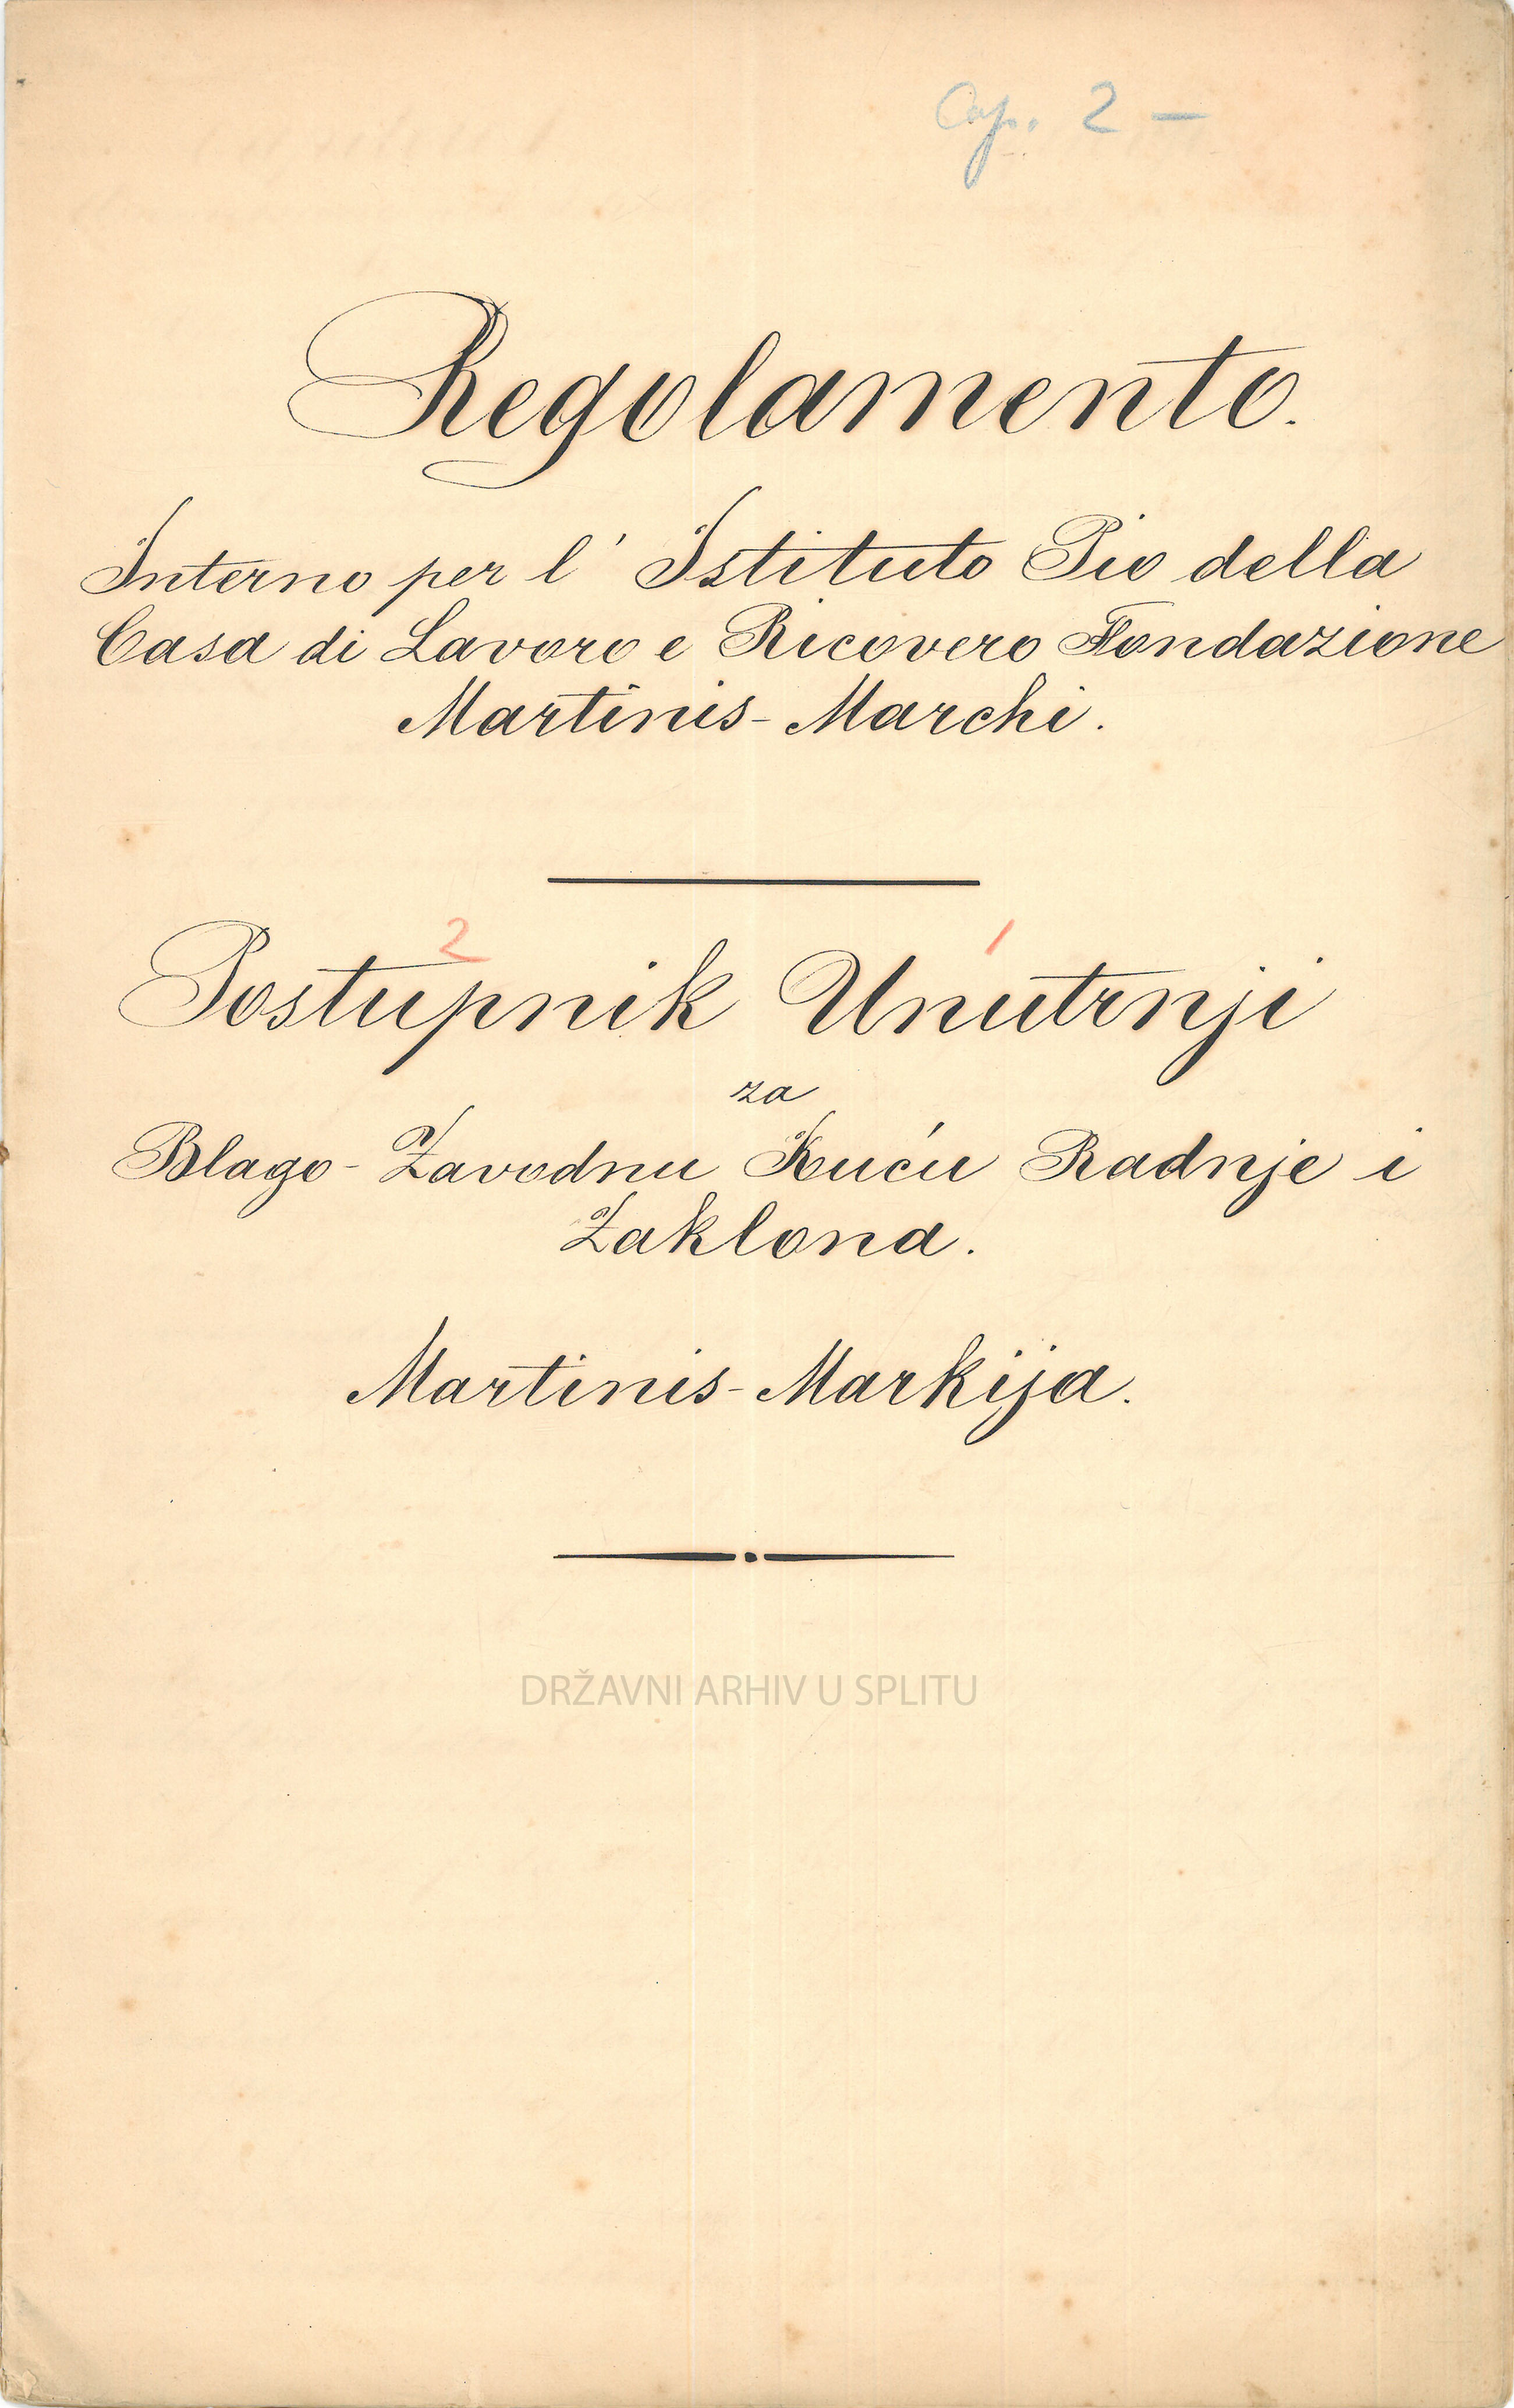 Cap. 2 —
Regolamento.
Interno per l' Istituto Pio della
Casa di Lavoro e Ricovero Fondazione
Martinis-Marchi.
2 1
Postupnik Unutrnji
za
Blago-Zavodnu Kuću Radnje i
Zaklona.
Martinis-Markija.
DRŽAVNI ARHIV U SPLITU